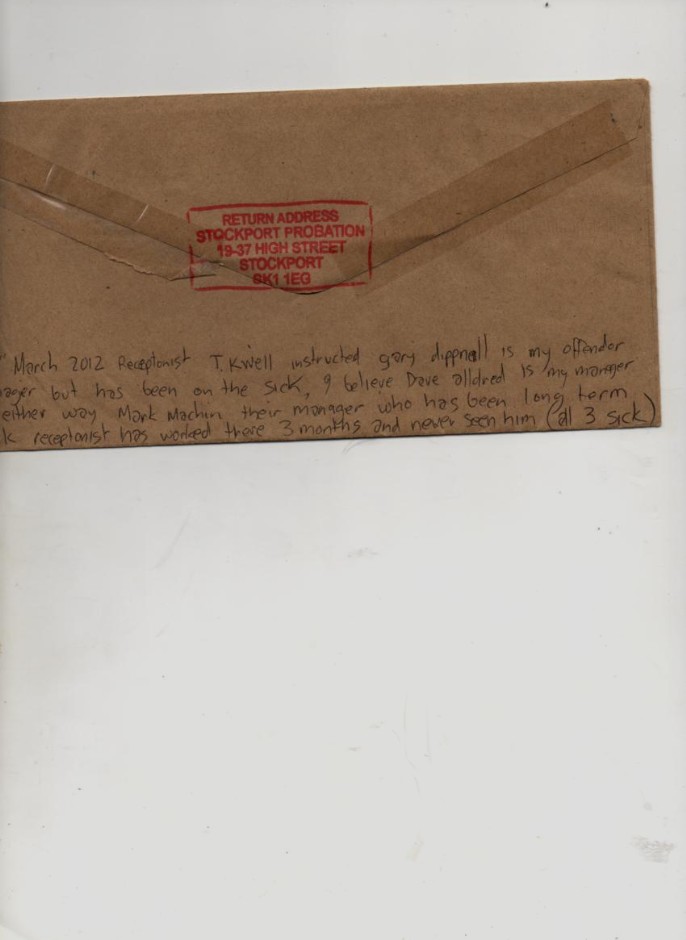 RETURN ADDRESS
STOCKPORT PROBATION
19-37 HIGH STREET
STOCKPORT
SK1 1EG
March 2012 Receptonist T. Kwell instructed gary dippnall is my offender
ager but has been on the sick, I believe Dave alldred is my manager
either way Mark Machin their manager who has been long term
k receptonist has worked there 3 months and never seen him (all 3 sick)